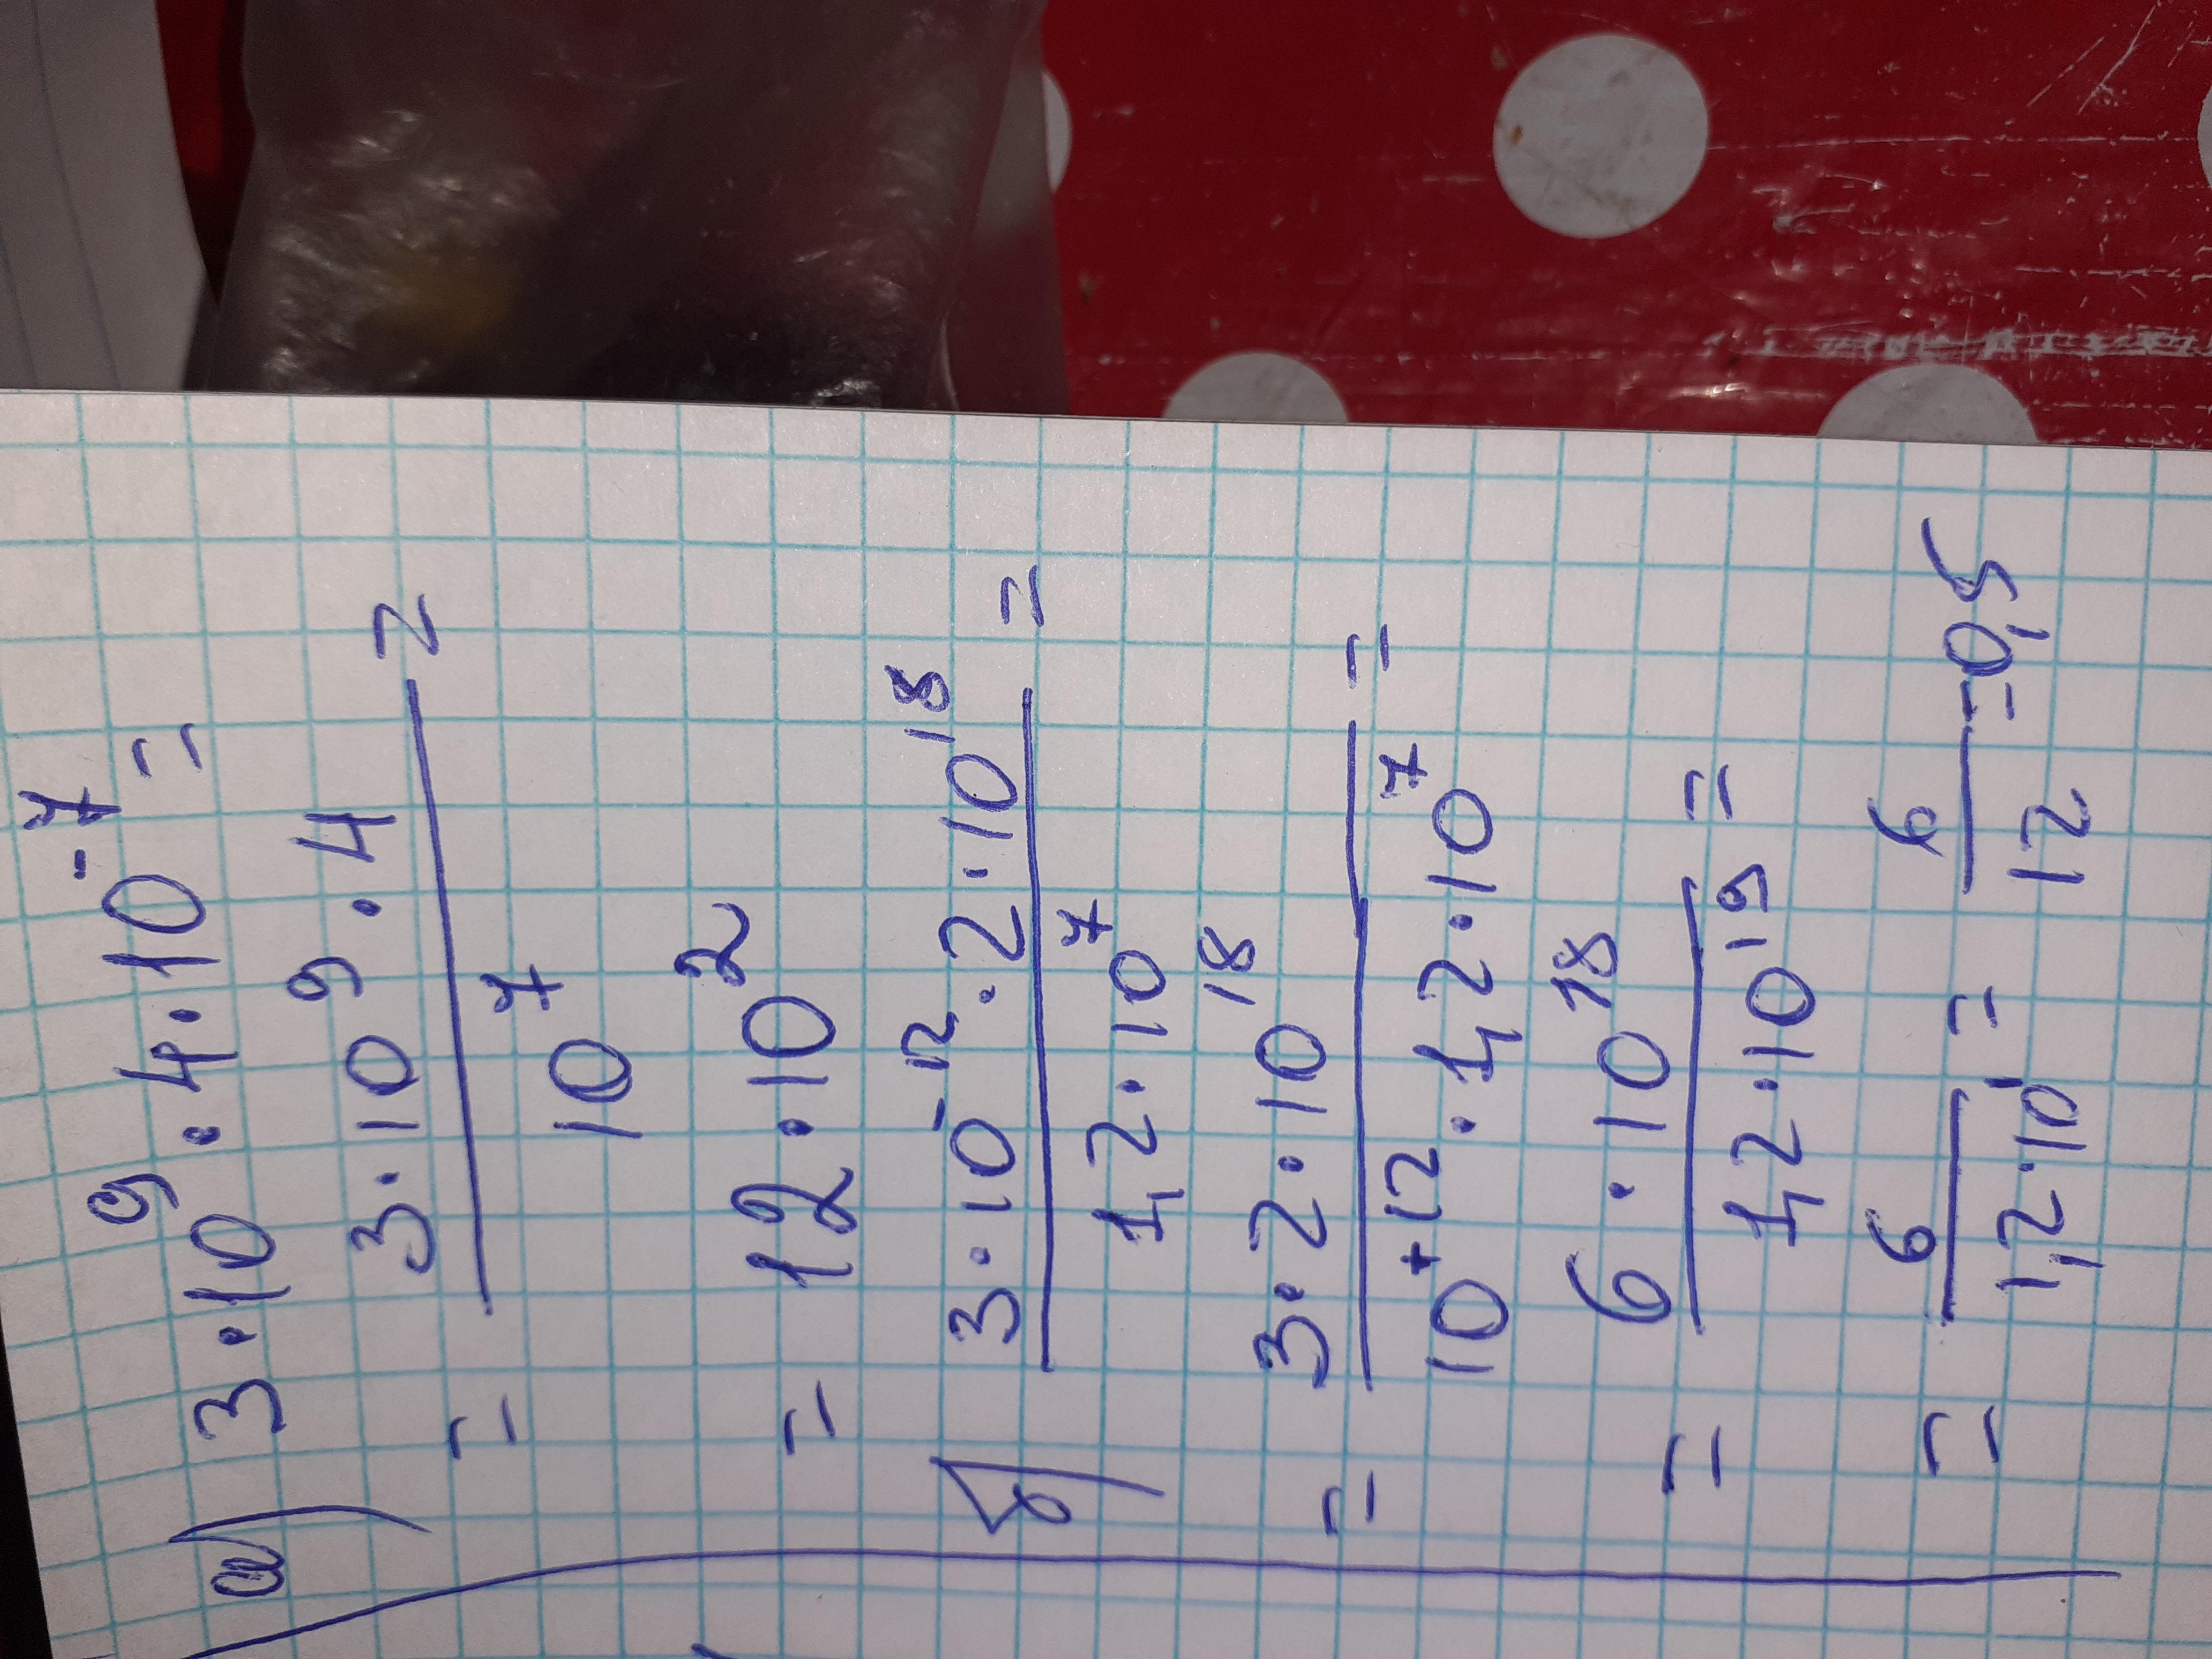 а) 3·10⁹·4·10⁻⁷ =
= 3·10⁹·4 / 10⁷ =
= 12·10²
б) 3·10⁻¹²·2·10¹⁸ / 1,2·10⁷ =
= 3·2·10¹⁸ / 10⁺¹²·1,2·10⁷ =
= 6·10¹⁸ / 1,2·10¹⁹ =
= 6 / 1,2·10¹ = 6 / 12 = 0,5